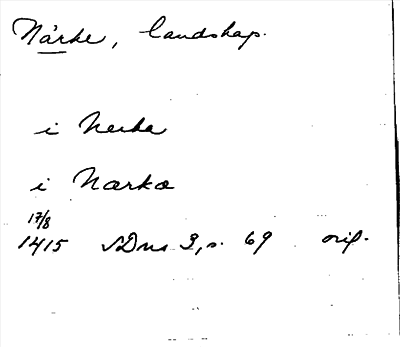 Närke, landskap.
i Nerke
i Nærka
17/8
1415 SDns 3, s. 69 orig.